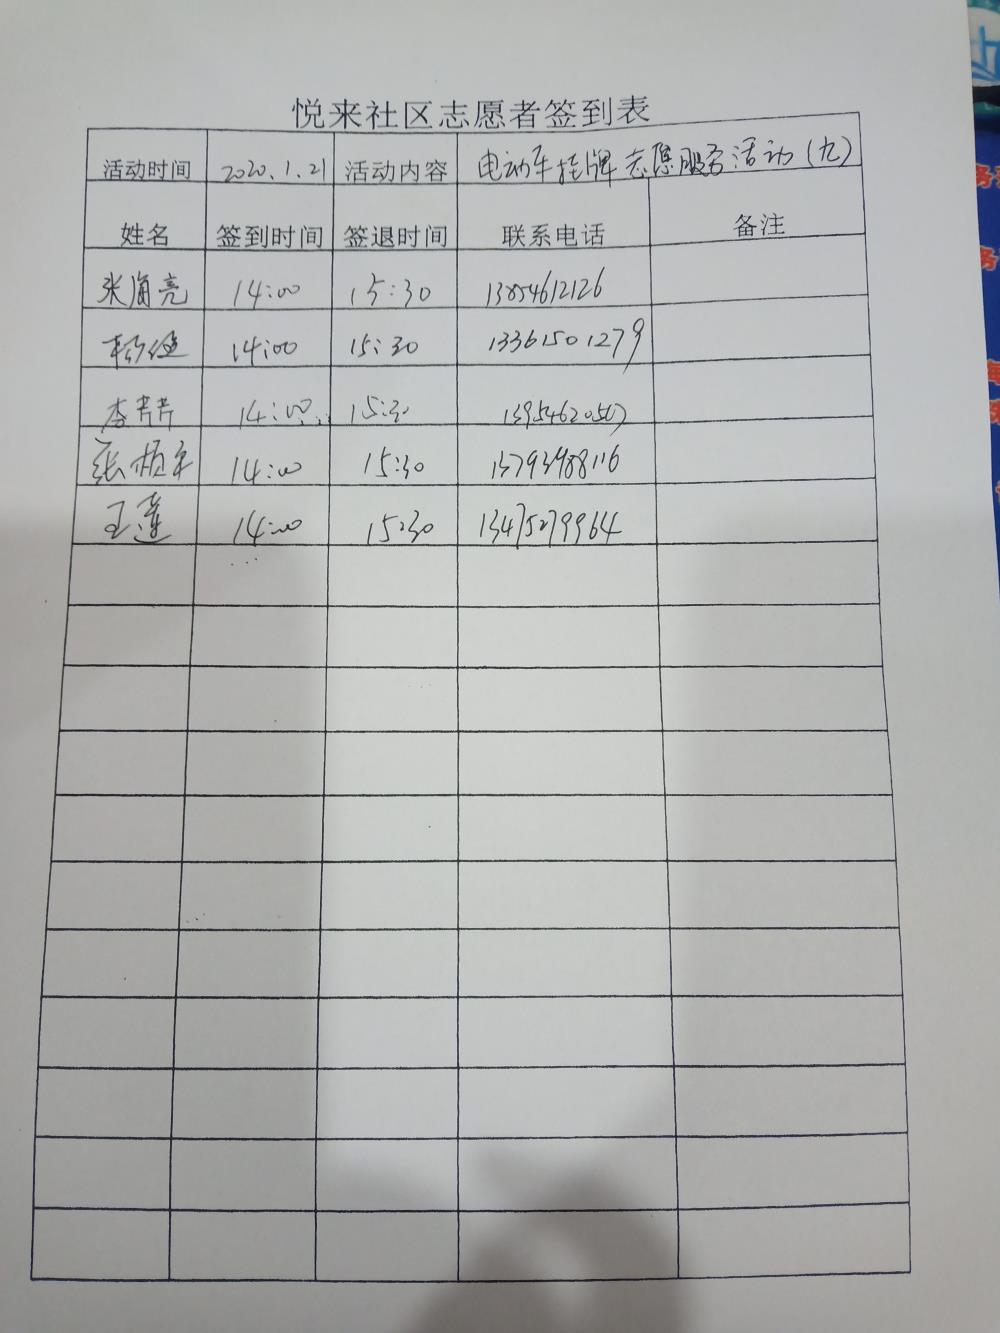 悦来社区志愿者签到表
活动时间 2020.1.21 活动内容 电动车挂牌志愿服务活动(九)
姓名 签到时间 签退时间 联系电话 备注
亮 14:00 15:30 13854612126
14:00 15:30 13361501279
李芹芹 14:00 15:30 13954620567
张 14:00 15:30 13793988116
王莲 14:00 15:30 13475279964